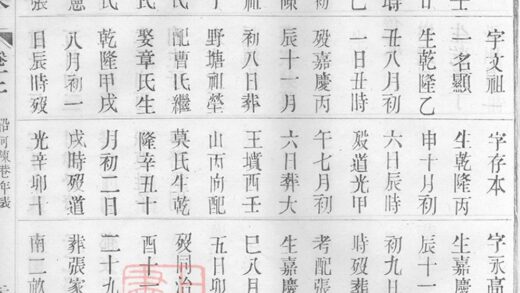 字文祖
一名顯
生乾隆乙
丑八月初
一日丑時
歿嘉慶丙
辰十一月
初八日葬
野塘祖塋
配曹氏繼
娶章氏生
乾隆甲戌
八月初一
日辰時歿
字存本
生乾隆丙
申十月初
六日辰時
歿道光甲
午七月初
六日葬大
王墳酉王
山丙向配
莫氏生乾
隆辛丑十
月初二日
戌時歿道
光辛卯十
字永高
生嘉慶
辰十一
初九日
時歿葬
考配張
生嘉慶
巳八月
五日卯
歿同治
酉十二
二十九
葬張家
南二畝
沿河陳巷年